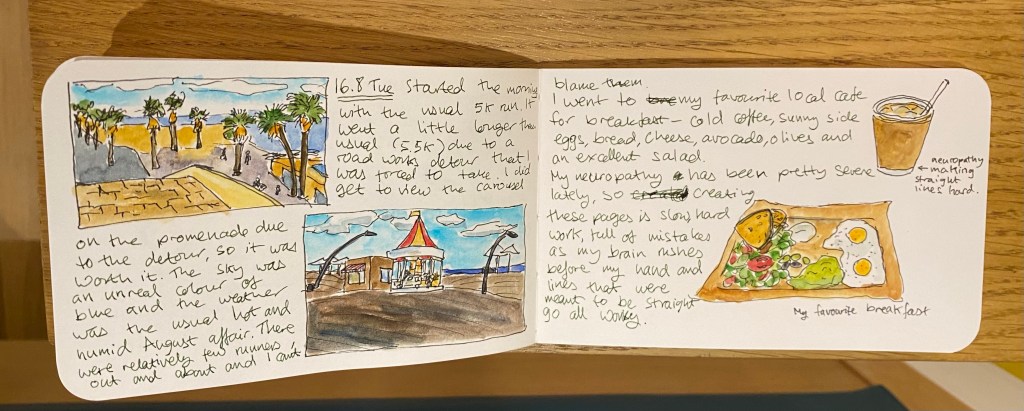 16.8 Tue Started the morning
with the usual 5k run. It
went a little longer than
usual (5.5k) due to a
road works detour that I
was forced to take. I did
get to view the carousel
on the promenade due
to the detour, so it was
worth it. The sky was
an unreal colour of
blue and the weather
was the usual hot and
humid August affair. There
were relatively few runners
out and about and I can't
blame them.
I went to my favourite local cafe
for breakfast – cold coffee, sunny side
eggs, bread, cheese, avocado, olives and
an excellent salad.
My neuropathy has been pretty severe
lately, so creating
these pages is slow hard
work, full of mistakes
as my brain rushes
before my hand and
lines that were
meant to be straight
go all wonky.
← neuropathy
making
straight
lines hard.
My favourite breakfast